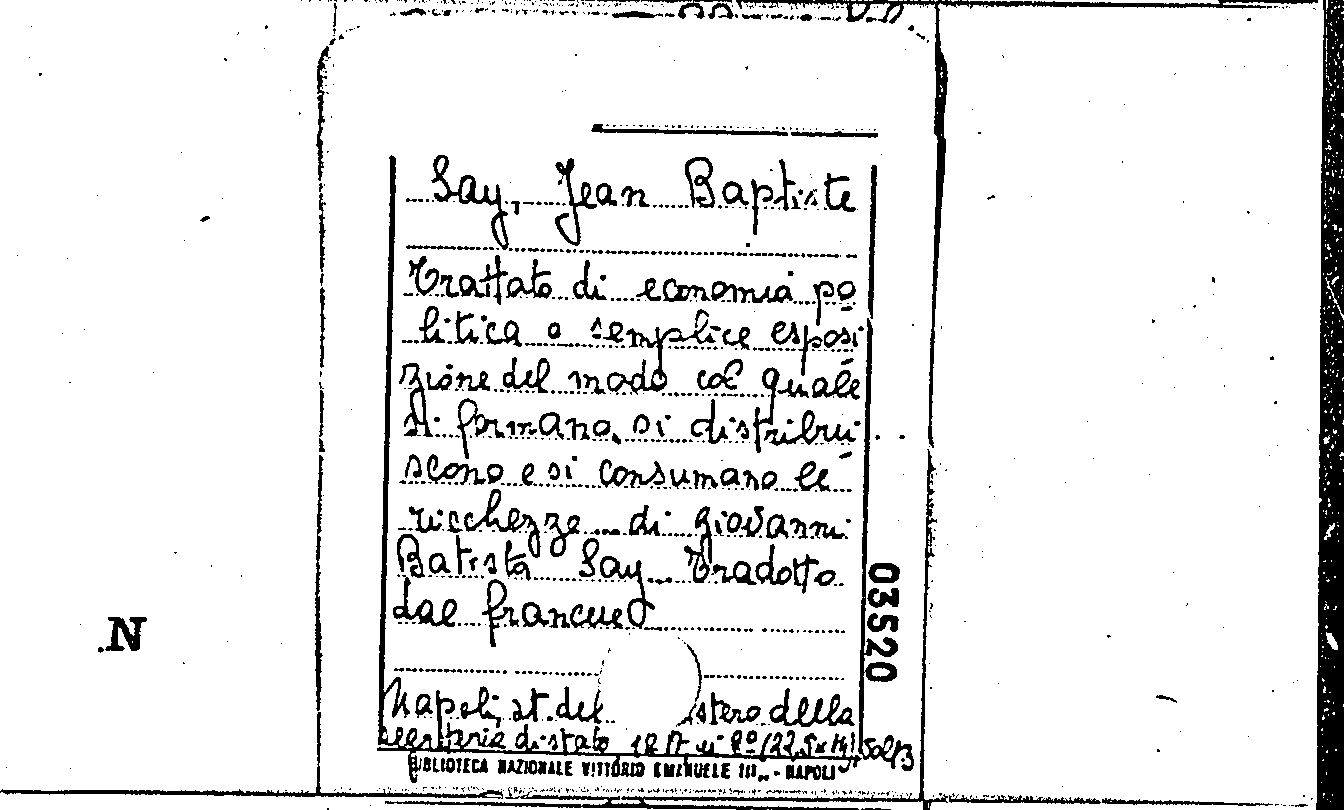 Say, Jean Baptiste
Trattato di economia po
litica o semplice esposi
zione del modo col quale
si formano, si distribui
scono e si consumano le
ricchezze... di Giovanni
Batista Say... Tradotto
dal francese
Napoli, st. del stero della
segreteria di stato in 8º (22,5x14)
BIBLIOTECA NAZIONALE VITTORIO EMANUELE III,, - NAPOLI
03520
N